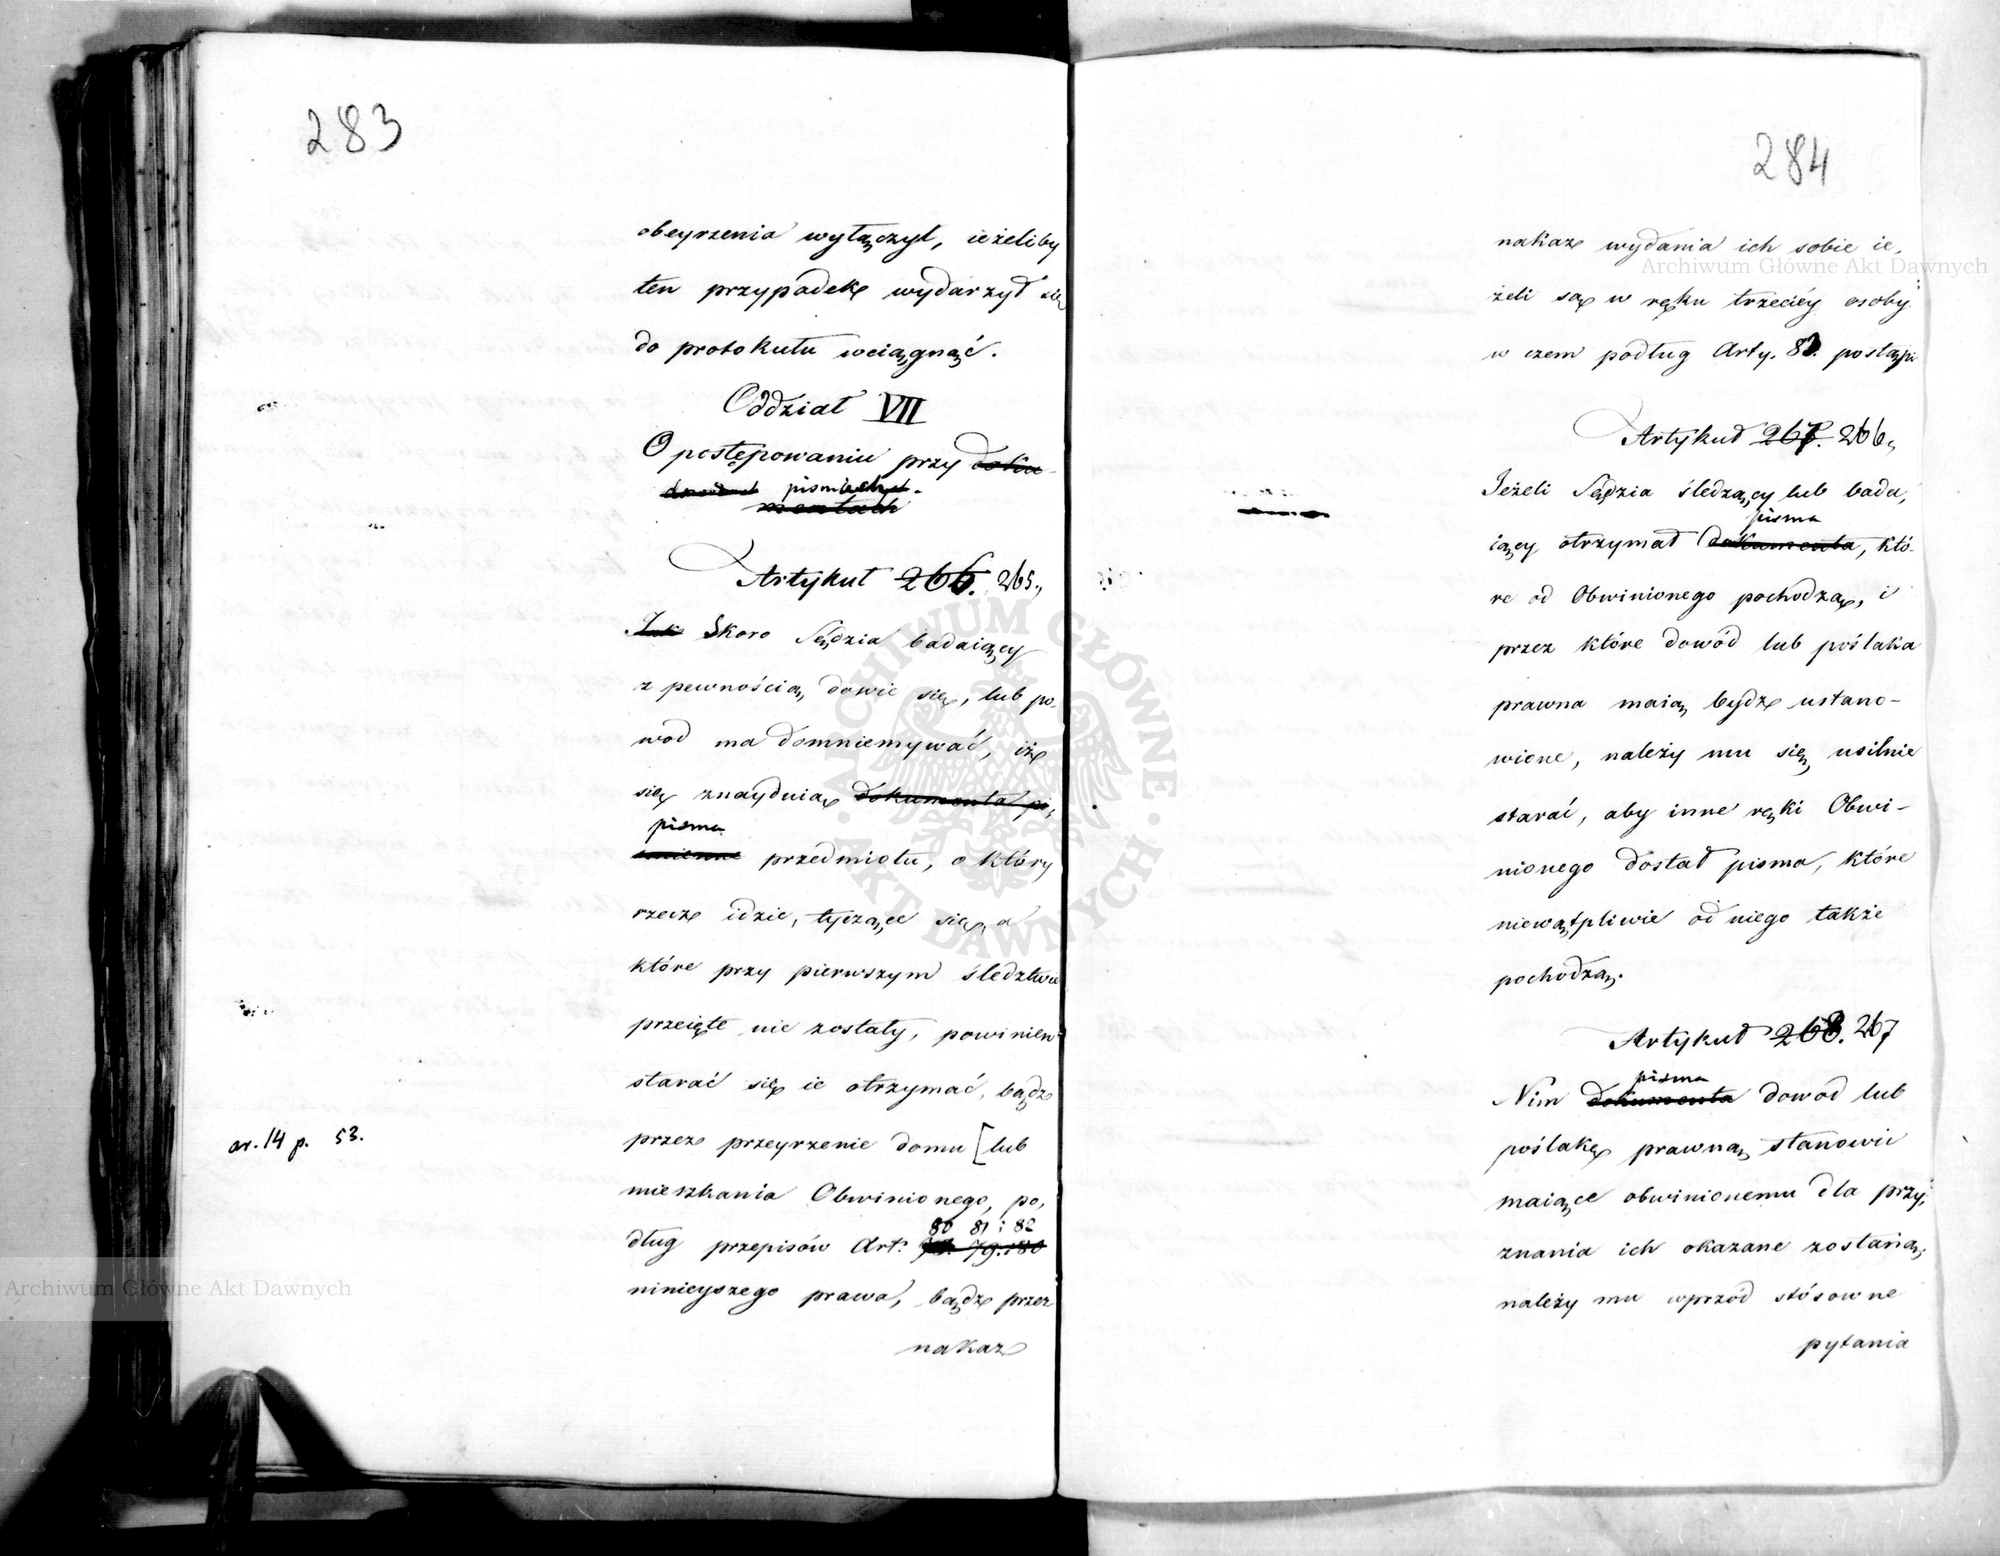 283
obeyrzenia wyłączył, ieżeliby
ten przypadek wydarzył się
do protokułu wciągnąć.
Oddział VII
O postępowaniu przy doku-
dowodach piśmiennych.
mentach
Artykuł 266. 265.,
Jak Skoro Sędzia badaiący
z pewnością dowie się, lub po,
wod ma domniemywać, iż
się znayduią dokumenta pi,
pisma
smienne przedmiotu, o który
rzecz idzie, tyczące się, a
które przy pierwszym śledztwie
przeięte nie zostały, powinien
starać się ie otrzymać, bądź
ar. 14 p. 53.
przez przeyrzenie domu [lub
mieszkania Obwinionego, po,
80 81 i 82
dług przepisów Art. 79. i 80
ninieyszego prawa, bądź przez
nakaz
284
nakaz wydania ich sobie ie,
żeli są w ręku trzeciéy osoby
w czem podług Arty. 83. postąpi
Artykuł 267. 266.,
Jeżeli Sędzia śledzący lub bada,
pisma
iący otrzymał dokumenta, któ-
re od Obwinionego pochodzą, i
przez które dowód lub poślaka
prawna maią bydź ustano-
wione, należy mu się usilnie
starać, aby inne ręki Obwi-
nionego dostał pisma, które
niewątpliwie od niego także
pochodzą.
Artykuł 268. 267
pisma
Nim dokumenta dowód lub
poślakę prawną stanowić
maiące obwinionemu dla przy,
znania ich okazane zostaną,
należy mu wprzód stósowne
pytania
Archiwum Główne Akt Dawnych
Archiwum Główne Akt Dawnych
ARCHIWUM GŁÓWNE · AKT DAWNYCH ·